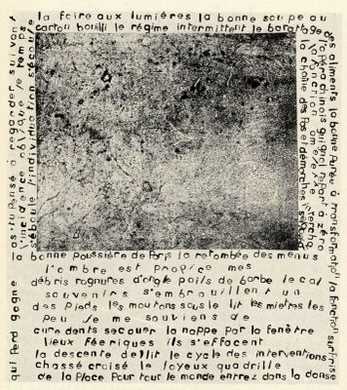 la foire aux lumières la bonne soupe au
carton bouilli le régime intermittent le barattage
des aliments la bonne Purée à transformation la fonction surprise
la chaîne des pas et démarches
as-tu pensé à regarder suivant
l'incidence oblique le temps
s'éboule l'individuation s'écoule
la bonne poussière de Paris la retombée des menus
l'ombre est propice mes
débris rognures d'ongle poils de barbe le cal
souvenirs s'embrouillent un
des Pieds les moutons sous le lit les miettes les
peu je me souviens de
cure dents secouer la nappe par la fenêtre
lieux féeriques ils s'effacent
la descente de lit le cycle des interventions
chassé croisé le joyeux quadrille
de la Place Pour tout le monde entrez dans la danse
qui Perd gagne